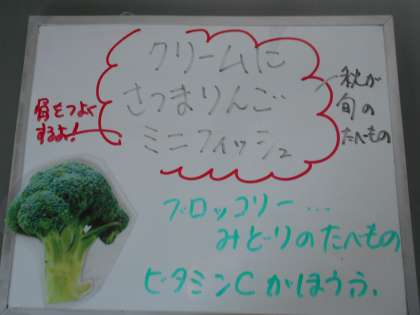 クリームに
さつまりんご
ミニフィッシュ
秋が
旬の
たべもの
骨をつよく
するよ!
ブロッコリー…
みどりのたべもの
ビタミンCがほうふ.